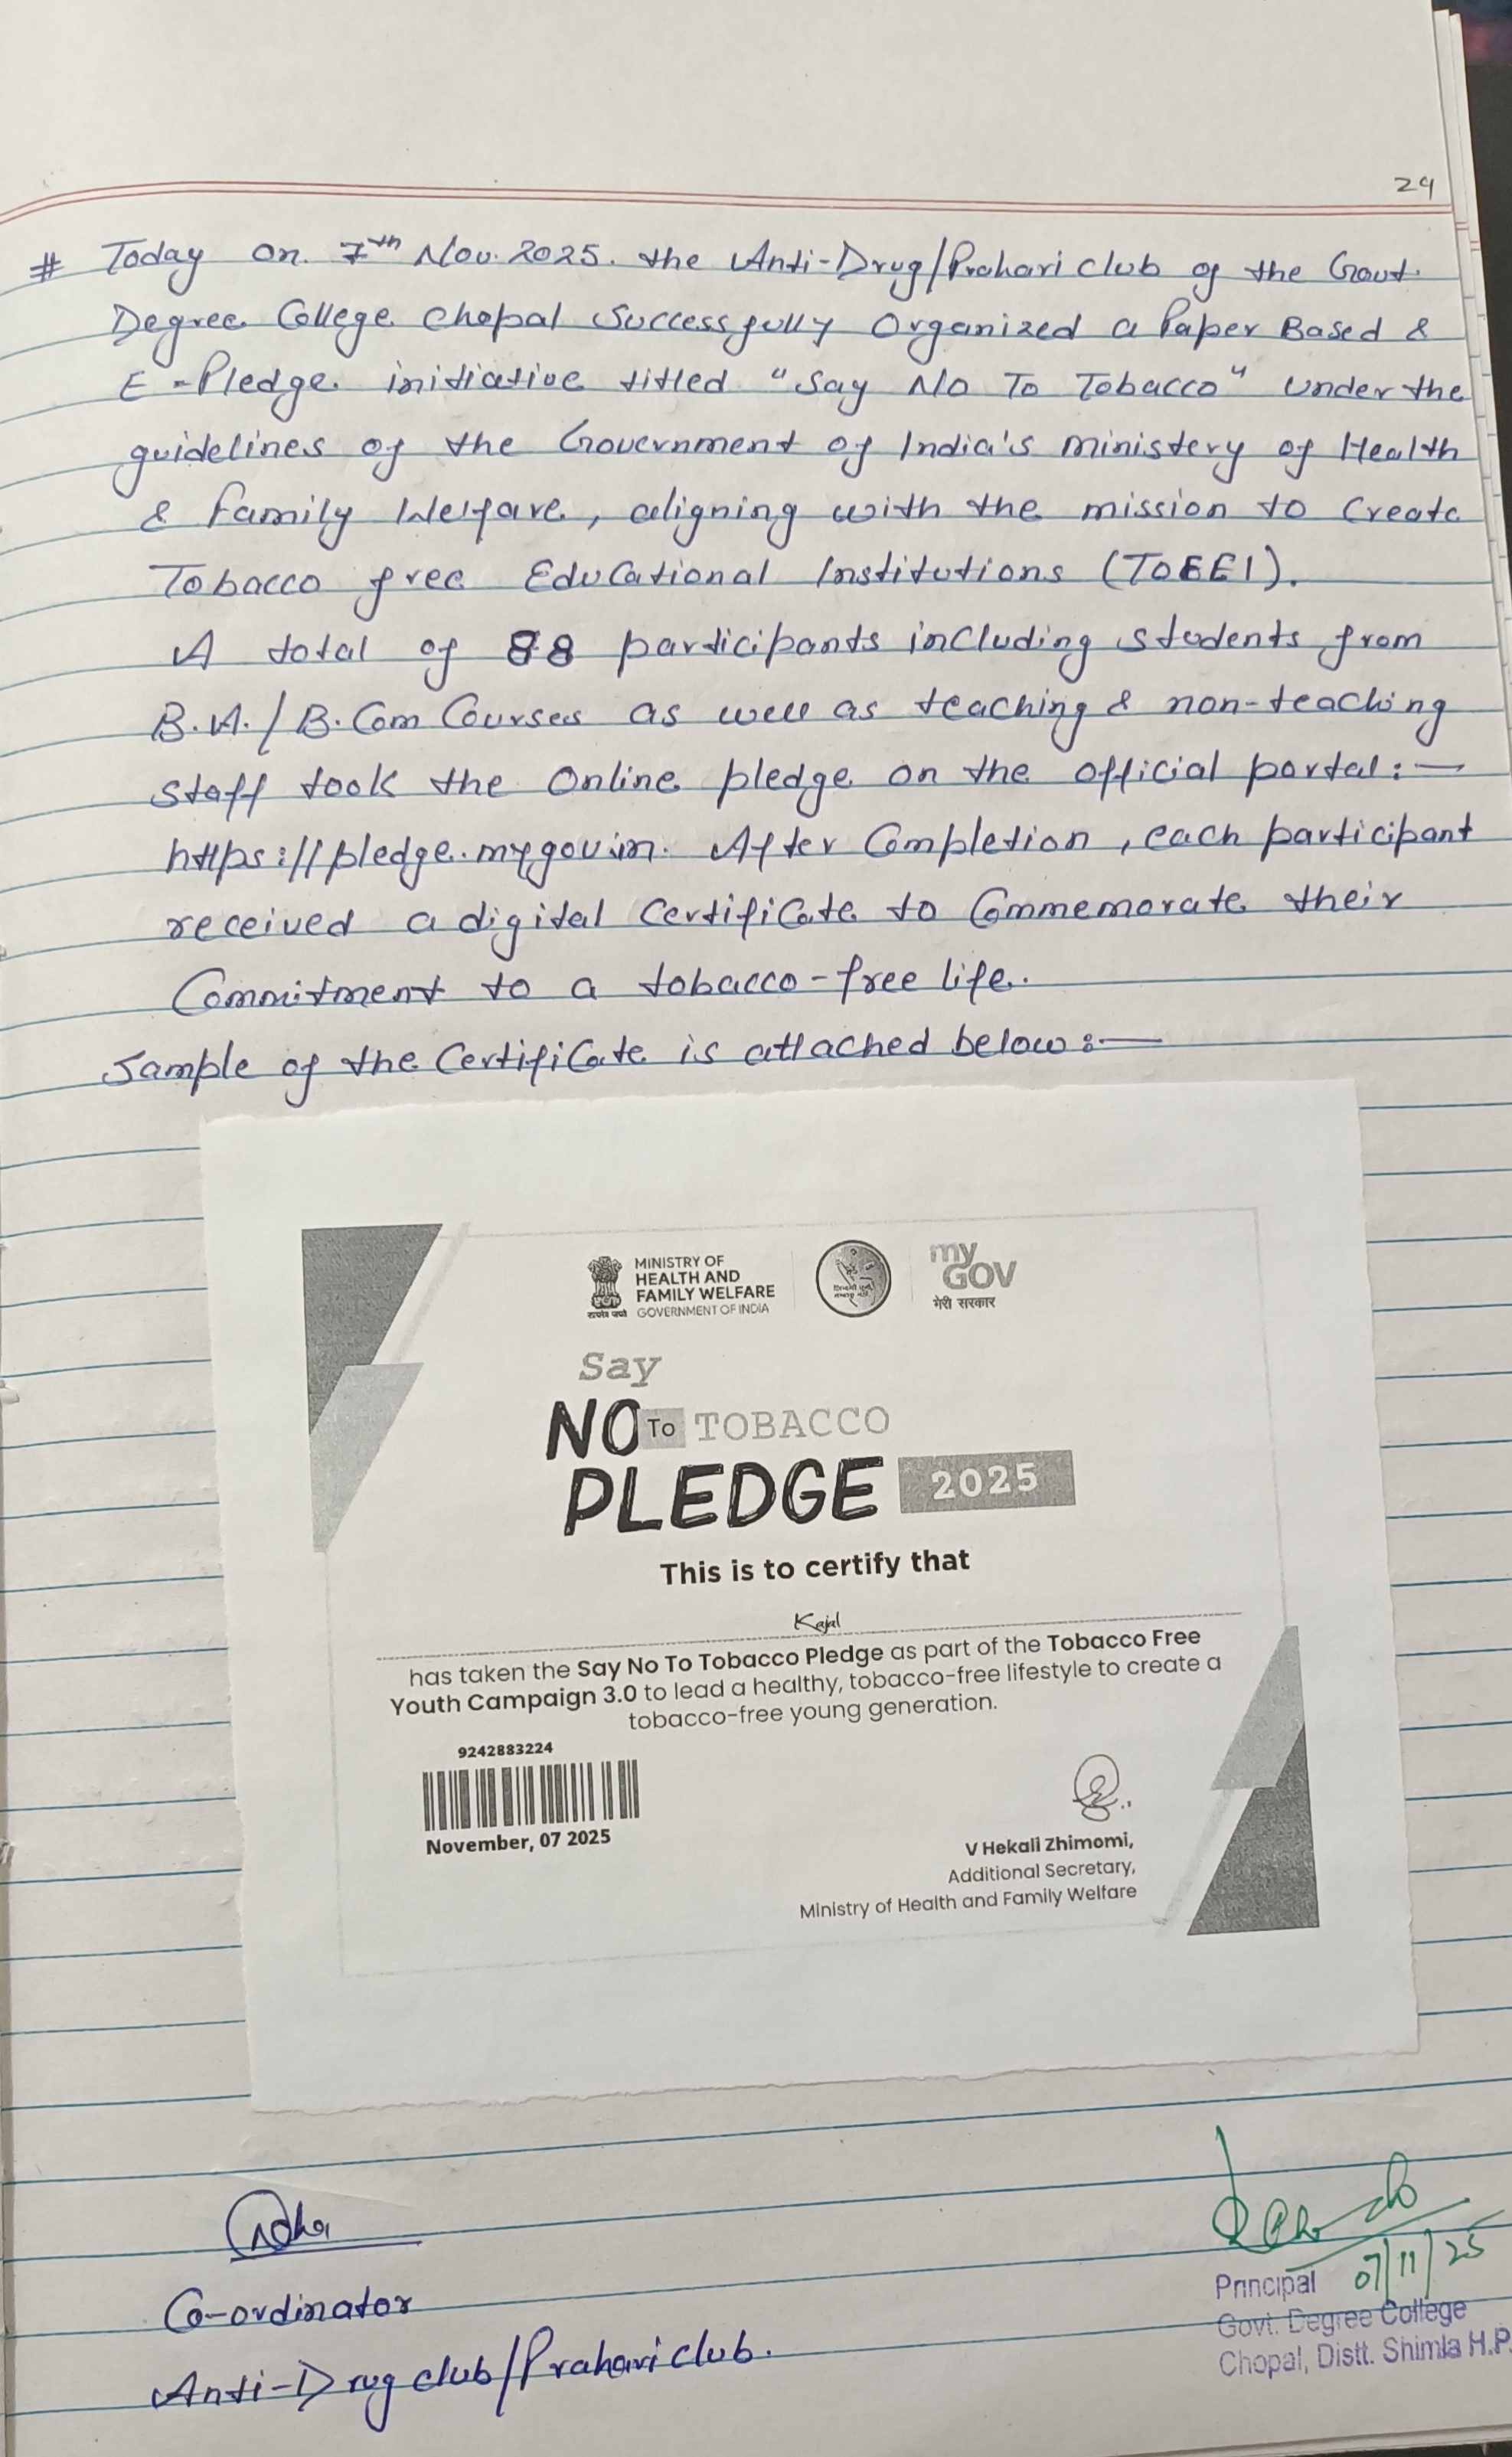 24
# Today on 7th Nov. 2025. the Anti-Drug/Prahari club of the Govt.
Degree College Chopal Successfully Organized a Paper Based &
E-Pledge initiative titled "Say No To Tobacco" under the
guidelines of the Government of India's ministery of Health
& Family Welfare, aligning with the mission to Create
Tobacco free Educational Institutions (ToEEI).
A total of 88 participants including students from
B.A./B.Com Courses as well as teaching & non-teaching
staff took the Online pledge on the official portal:—
https://pledge.mygov.in. After Completion, each participant
received a digital Certificate to Commemorate their
Commitment to a tobacco-free life.
Sample of the Certificate is attached below:—
MINISTRY OF
HEALTH AND
FAMILY WELFARE
GOVERNMENT OF INDIA
सत्यमेव जयते
my
GOV
मेरी सरकार
Say
NO To TOBACCO
PLEDGE 2025
This is to certify that
Kajal
has taken the Say No To Tobacco Pledge as part of the Tobacco Free
Youth Campaign 3.0 to lead a healthy, tobacco-free lifestyle to create a
tobacco-free young generation.
9242883224
November, 07 2025
V Hekali Zhimomi,
Additional Secretary,
Ministry of Health and Family Welfare
Co-ordinator
Anti-Drug club/Prahari club.
07/11/25
Principal
Govt. Degree College
Chopal, Distt. Shimla H.P.